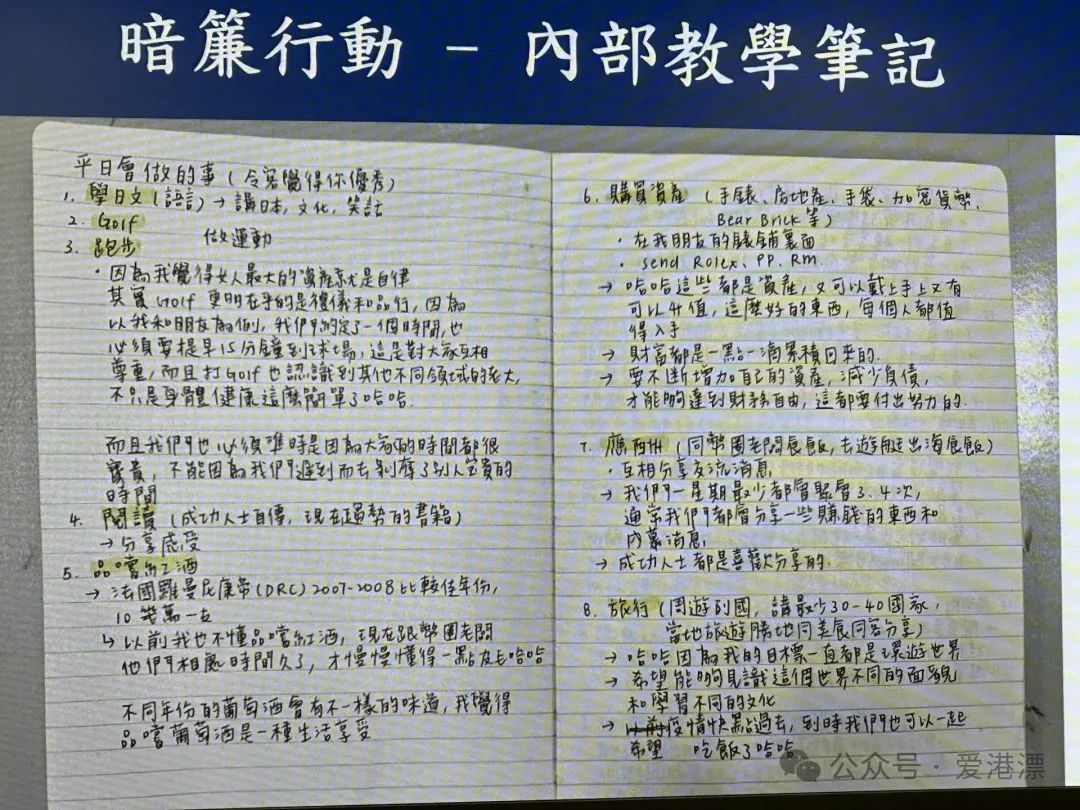 暗簾行動 – 內部教學筆記
平日會做的事(令客覺得你優秀)
1. 學日文(語言) → 講日本, 文化, 笑話
2. Golf
3. 跑步 做運動
· 因為我覺得女人最大的資產就是自律
其實 Golf 更明在乎的是禮儀和品行, 因為
以我和朋友為例, 我們約定了一個時間, 也
必須要提早15分鐘到球場, 這是對大家互相
尊重, 而且打Golf也認識到其他不同領域的老大,
不只是身體健康這麼簡單了哈哈.
而且我們也必須準時是因為大家的時間都很
寶貴, 不能因為我們遲到而去剝奪了別人寶貴的
時間
4. 閱讀 (成功人士自傳, 現在趨勢的書籍)
→ 分享感受
5. 品嚐紅酒
→ 法國羅曼尼康帝(DRC) 2007-2008 比較佳年份,
10幾萬一支
↳ 以前我也不懂品嚐紅酒, 現在跟幣圈老闆
他們相處時間久了, 才慢慢懂得一點皮毛哈哈
不同年份的葡萄酒會有不一樣的味道, 我覺得
品嚐葡萄酒是一種生活享受
6. 購買資產 (手錶、房地產、手袋、加密貨幣、
Bear Brick 等)
· 在我朋友的錶舖裏面
· send Rolex、PP、Rm.
→ 哈哈這些都是資產, 又可以戴上手上又有
可以升值, 這麼好的東西, 每個人都值
得入手
→ 財富都是一點一滴累積回來的.
→ 要不斷增加自己的資產, 減少負債,
才能夠達到財務自由, 這都要付出努力的.
7. 應酬 (同幣圈老闆食飯, 去遊艇出海食飯)
· 互相分享交流消息
→ 我們一星期最少都會聚會3.4次,
通常我們都會分享一些賺錢的東西和
內幕消息
→ 成功人士都是喜歡分享的.
8. 旅行 (周遊列國, 講最少30-40國家,
當地旅遊勝地同美食同客分享)
→ 哈哈因為我的目標一直都是環遊世界
→ 希望能夠見識這個世界不同的面貌
和學習不同的文化
→ 疫情快點過去, 到時我們也可以一起
希望 吃飯了哈哈
公众号 · 爱港漂